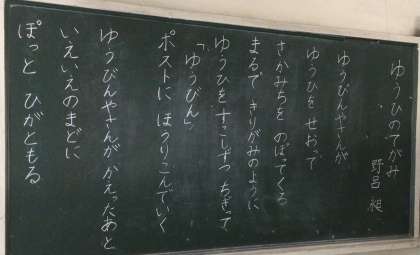 ゆうひのてがみ
野呂 昶
ゆうびんやさんが
ゆうひを せおって
さかみちを のぼってくる
まるで きりがみのように
ゆうひを すこしずつ ちぎって
「ゆうびん」
ポストに ほうりこんでいく
ゆうびんやさんが かえったあと
いえいえのまどに
ぽっと ひがともる